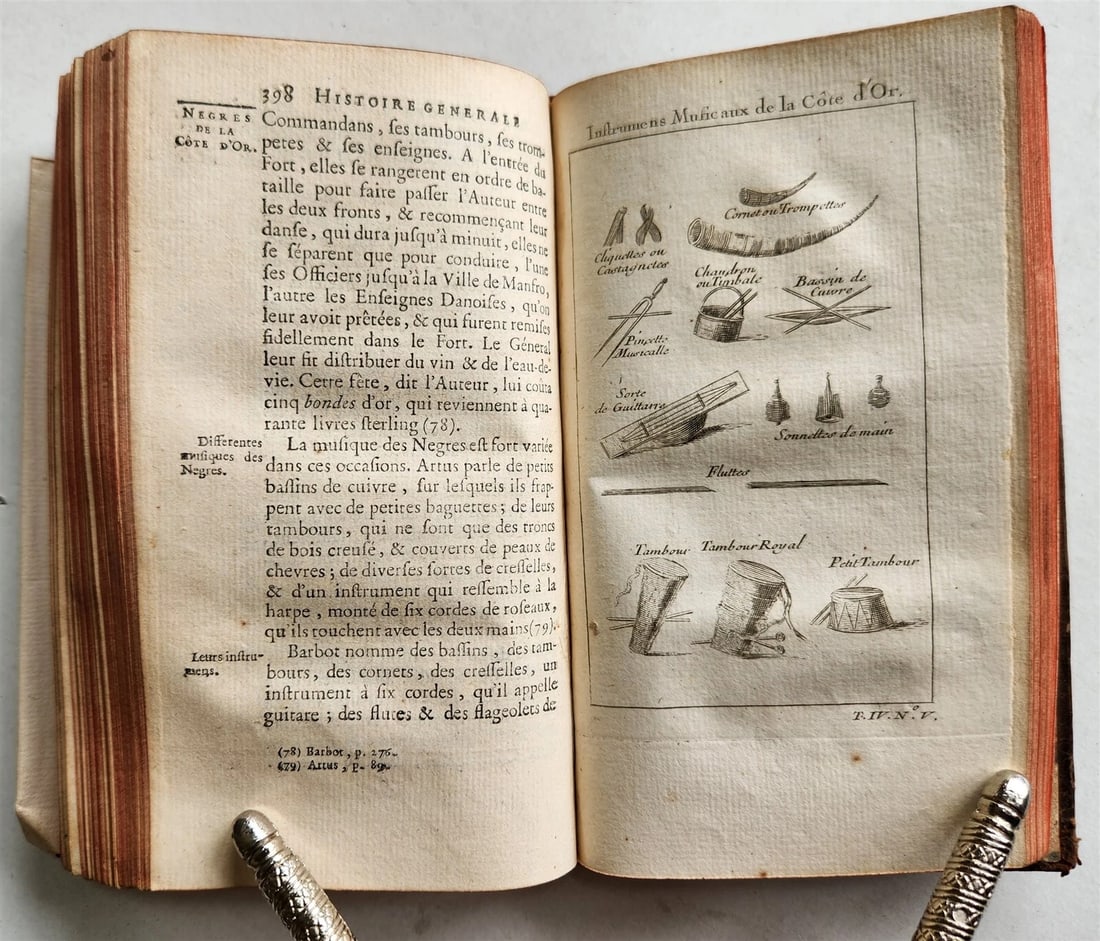 398 HISTOIRE GENERALE
NEGRES
DE LA
CÔTE D'OR.
Commandans, ſes tambours, ſes trom-
petes & ſes enſeignes. A l'entrée du
Fort, elles ſe rangerent en ordre de ba-
taille pour faire paſſer l'Auteur entre
les deux fronts, & recommençant leur
danſe, qui dura juſqu'à minuit, elles ne
ſe ſéparent que pour conduire, l'une
ſes Officiers juſqu'à la Ville de Manfro,
l'autre les Enſeignes Danoiſes, qu'on
leur avoit prêtées, & qui furent remiſes
fidellement dans le Fort. Le Général
leur fit diſtribuer du vin & de l'eau-de-
vie. Cette fête, dit l'Auteur, lui coûta
cinq bondes d'or, qui reviennent à qua-
rante livres ſterling (78).
Differentes
muſiques des
Negres.
La muſique des Negres eſt fort variée
dans ces occaſions. Artus parle de petits
baſſins de cuivre, ſur leſquels ils frap-
pent avec de petites baguettes; de leurs
tambours, qui ne ſont que des troncs
de bois creuſé, & couverts de peaux de
chevres; de diverſes ſortes de creſſelles,
& d'un inſtrument qui reſſemble à la
harpe, monté de ſix cordes de roſeaux,
qu'ils touchent avec les deux mains (79).
Leurs inſtru-
mens.
Barbot nomme des baſſins, des tam-
bours, des cornets, des creſſelles, un
inſtrument à ſix cordes, qu'il appelle
guitare; des flutes & des flageolets de
(78) Barbot, p. 276.
(79) Artus, p. 89.
Inſtrumens Muſicaux de la Côte d'Or.
Cornet ou Trompettes
Cliquettes ou
Castagnetes
Chaudron
ou Timbale
Bassin de
Cuivre
Pincette
Musicalle
Sorte
de Guittarre
Sonnettes de main
Fluttes
Tambour
Tambour Royal
Petit Tambour
T. IV. N.º V.